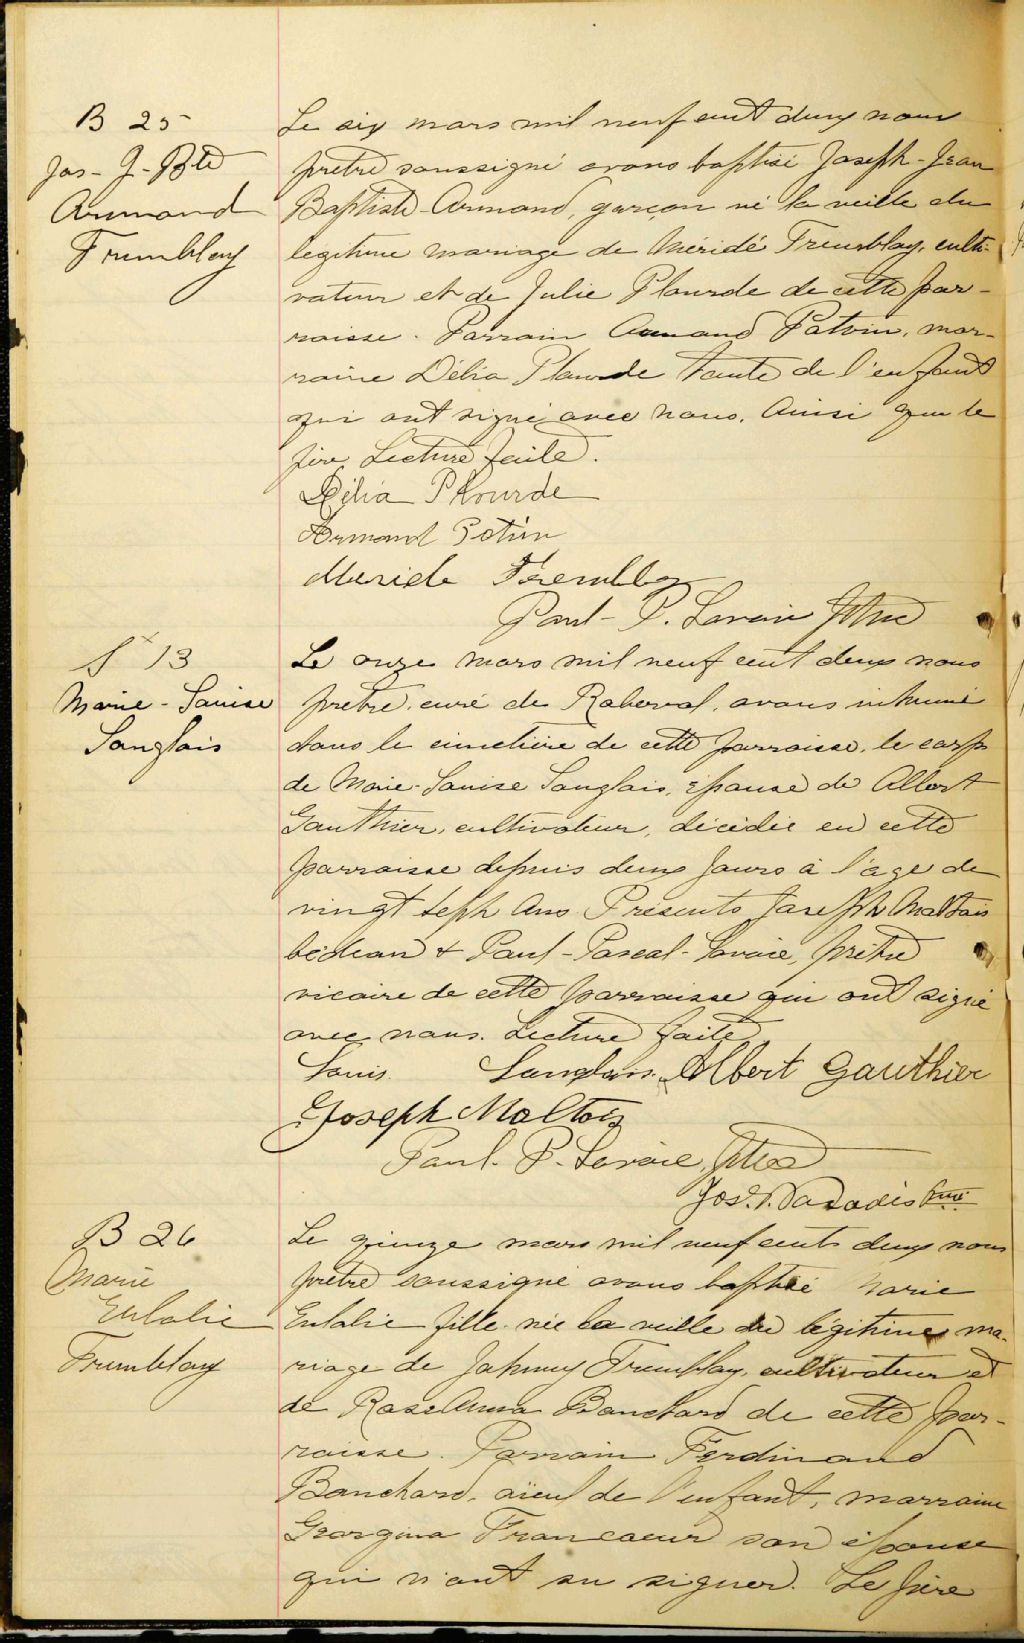 B 25
Jos - J - Bte
Armand
Tremblay
Le six mars mil neuf cent deux nous
prêtre soussigné avons baptisé Joseph - Jean
Baptiste - Armand, garçon né la veille du
légitime mariage de Méridé Tremblay, culti-
vateur et de Julie Plourde de cette par-
roisse. Parrain Armand Potvin, mar-
raine Délia Plourde tante de l'enfant
qui ont signé avec nous. Ainsi que le
père Lecture faite.
Délia Plourde
Armand Potvin
Meride Tremblay
Paul - P. Lavoie Ptre
S 13
Marie - Louise
Langlais
Le onze mars mil neuf cent deux nous
prêtre, curé de Roberval, avons inhumé
dans le cimetière de cette parroisse, le corps
de Marie - Louise Langlais, épouse de Albert
Gauthier, cultivateur, décédée en cette
parroisse depuis deux jours à l'age de
vingt sept ans. Présents Joseph Maltais
bédeau & Paul - Pascal - Lavoie, prêtre
vicaire de cette parroisse qui ont signé
avec nous. Lecture faite
Louis Langlais Albert Gauthier
Joseph Maltais
Paul. P. Lavoie, Ptre
Jos. P. Paradis
B 26
Marie
Eulalie
Tremblay
Le quinze mars mil neuf cent deux nous
prêtre soussigné avons baptisé Marie
Eulalie fille née la veille du légitime ma-
riage de Johnny Tremblay, cultivateur et
de Rose Anna Banchard de cette par-
roisse. Parrain Ferdinand
Banchard, aïeul de l'enfant, marraine
Georgina Francoeur son épouse
qui n'ont su signer. Le père